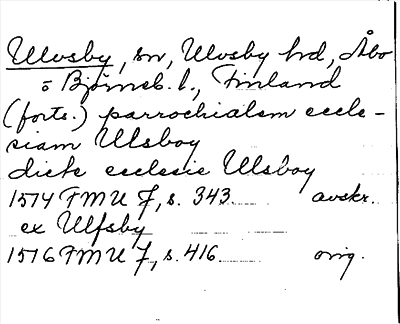 Ulvsby, sn, Ulvsby hrd, Åbo
o Björneb. l., Finland
(forts.) parrochialem eccle-
siam Ulsboy
dicte ecclesie Ulsboy
1514 FMU 7, s. 343 avskr.
ex Ulfsby
1516 FMU 7, s. 416 orig.